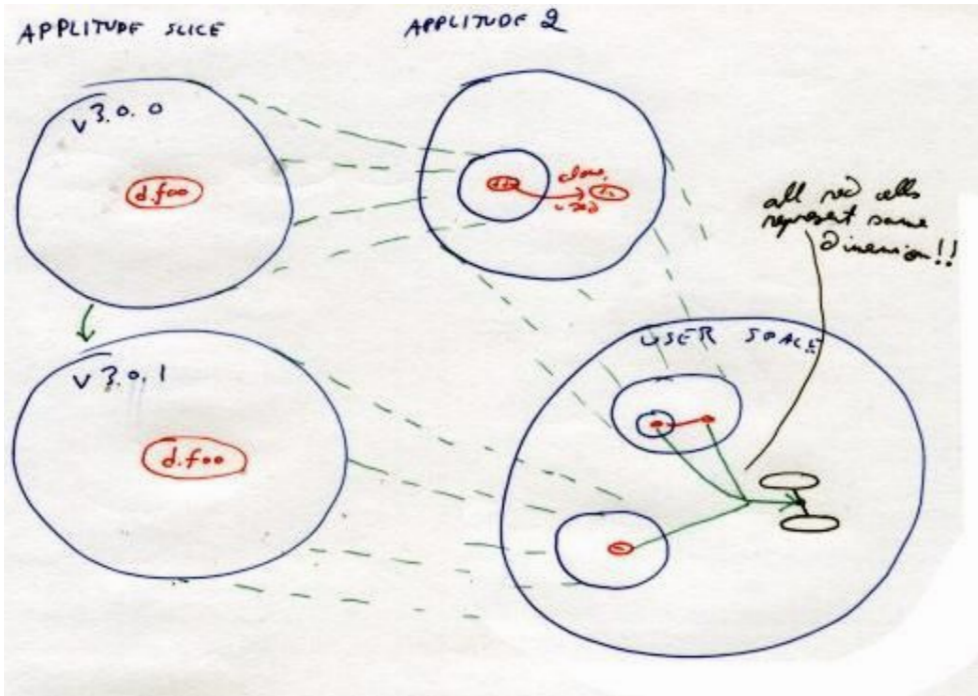 APPLITUDE SLICE
APPLITUDE 2
v 3.0.0
d.foo
all red cells
represent same
dimension!!
USER SPACE
v 3.0.1
d.foo